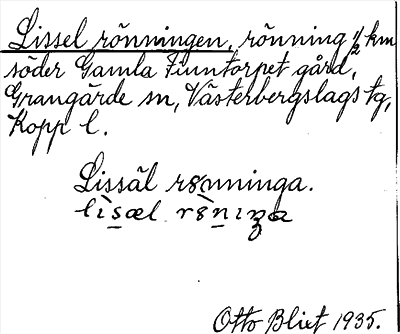 Lissel rönningen, rönning ½ km
söder Gamla Finntorpet gård,
Grangärde sn, Västerbergslags tg,
Kopp l.
Lissäl rönninga.
Otto Blixt 1935.